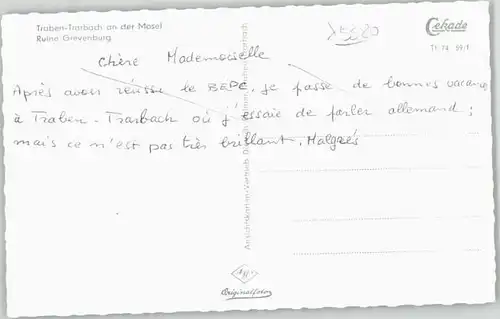 Traben-Trarbach an der Mosel
Ruine Grevenburg
Cekade
Tt 74 59/1
Chère Mademoiselle
Après avoir réussi le BEPC, je passe de bonnes vacances
à Traben-Trarbach où j'essaie de parler allemand ;
mais ce n'est pas très brillant. Malgrés
Originalfoto